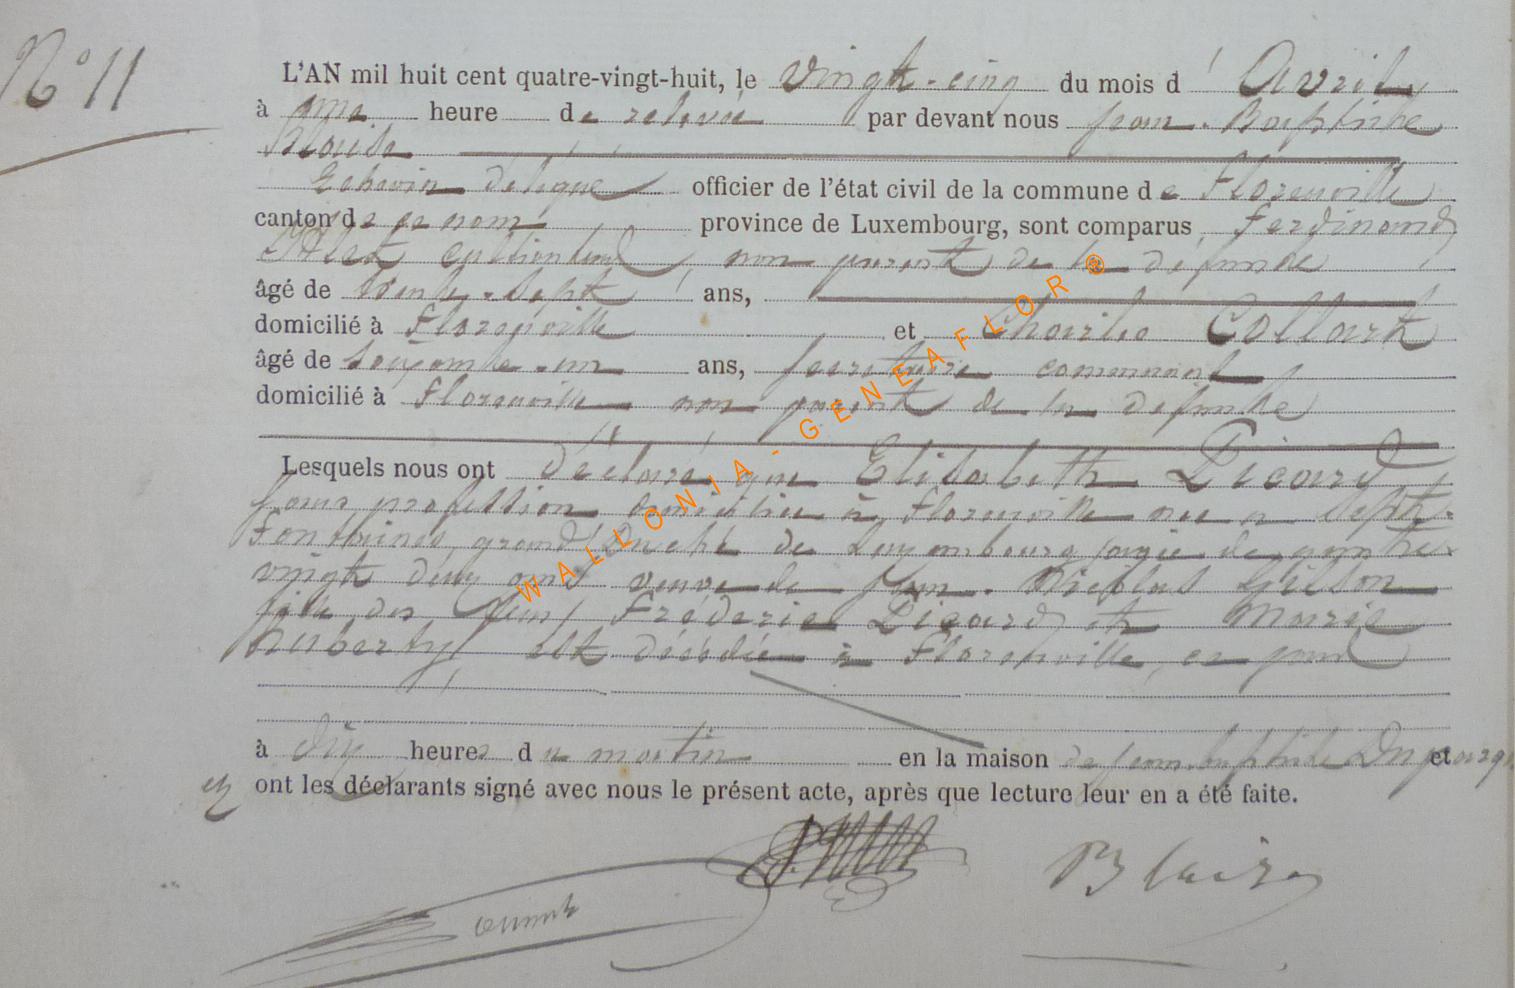 N° 11
L'AN mil huit cent quatre-vingt-huit, le vingt-cinq du mois d'Avril
à une heure de relevée par devant nous Jean-Baptiste
Blaise
Echevin délégué officier de l'état civil de la commune de Florenville
canton de ce nom province de Luxembourg, sont comparus Ferdinand
cultivateur, non parent de la défunte
âgé de trente-sept ans,
domicilié à Florenville et Charles Collart
âgé de soixante-un ans, secrétaire communal
domicilié à Florenville non parent de la défunte
Lesquels nous ont déclaré que Elisabeth Picard
sans profession domiciliée à Florenville née à Sept-
Fontaines, grand duché de Luxembourg, âgée de quatre-
vingt deux ans veuve de Jean-Nicolas Gilson
fille des feus Fréderic Picard et Marie
Huberty est décédée à Florenville, ce jour
à dix heures du matin en la maison de Jean-baptiste et
ont les déclarants signé avec nous le présent acte, après que lecture leur en a été faite.
Blaise
WALLONIA - GENEAFLOR ®